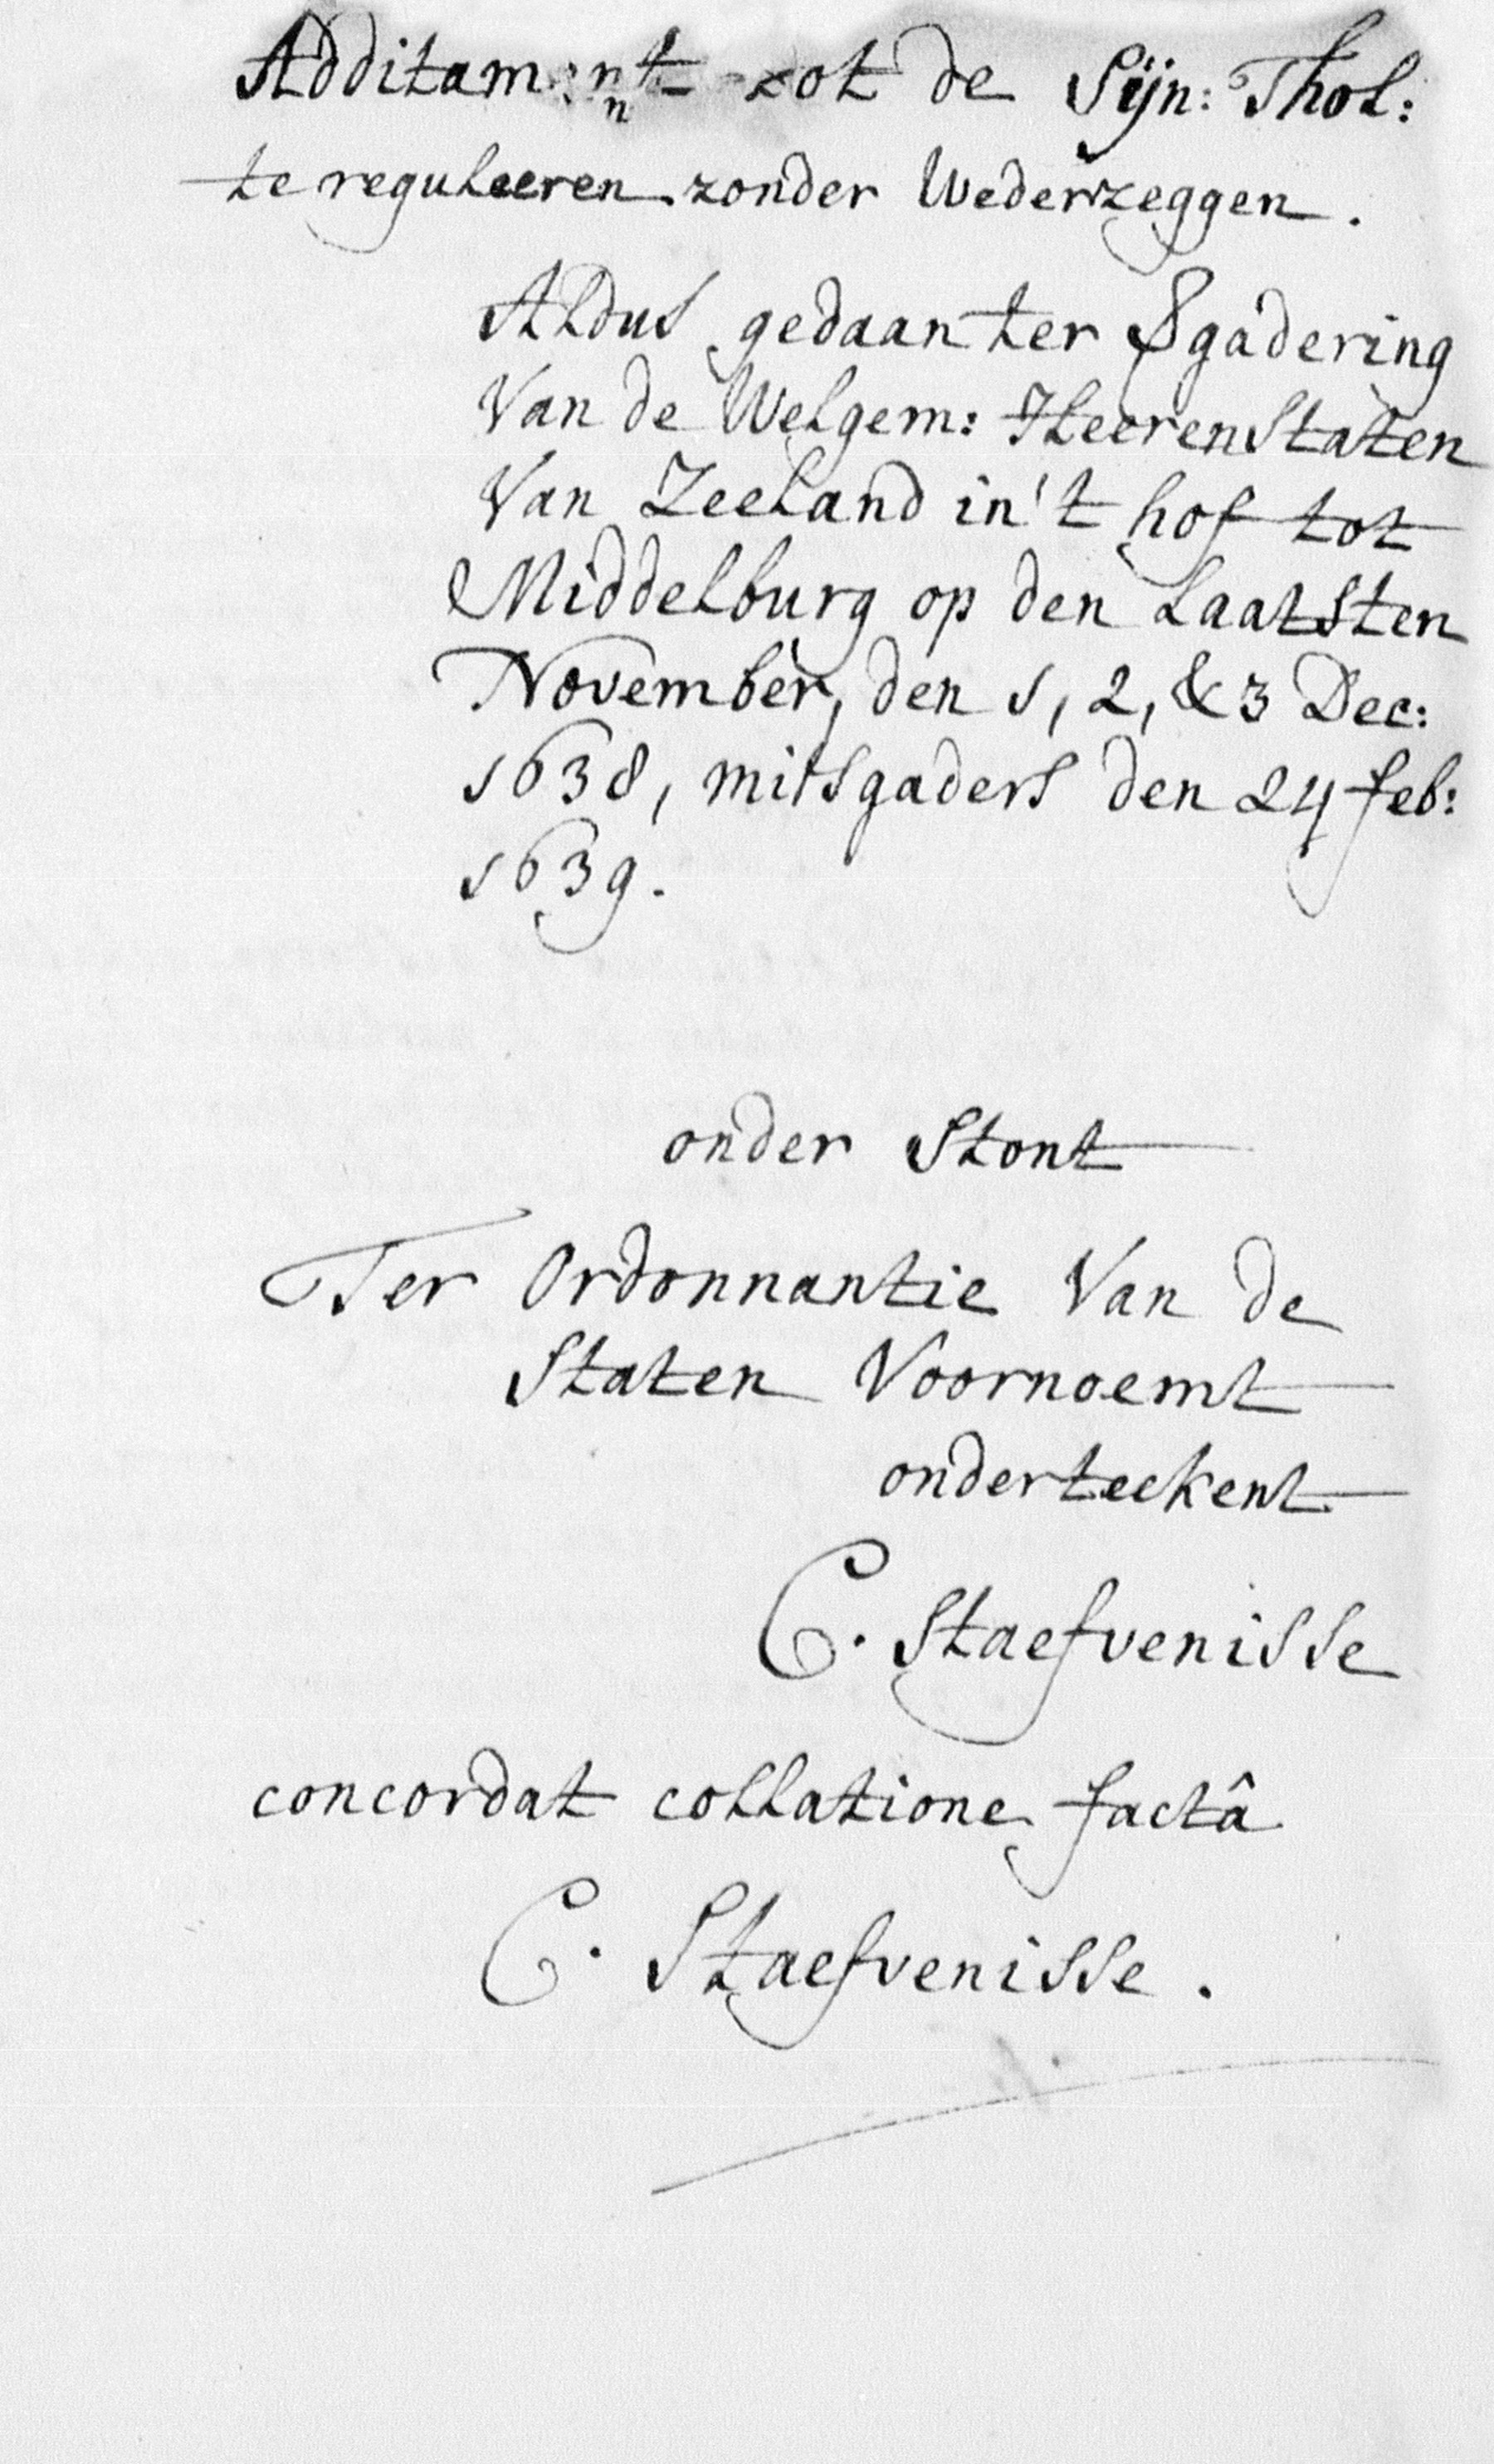 Additament tot de Sijn: Thol:
te reguleeren zonder Wederzeggen.
Aldus gedaan ter Vgadering
Van de Welgem: Heeren Staten
Van Zeeland in't hof tot
Middelburg op den Laatsten
November, den 1, 2, & 3 Dec:
1638, mitsgaders den 24 feb:
1639.
onder Stont
Ter Ordonnantie Van de
Staten Voornoemt
onderteekent
C. Staefvenisse
concordat collatione factâ
C. Staefvenisse.